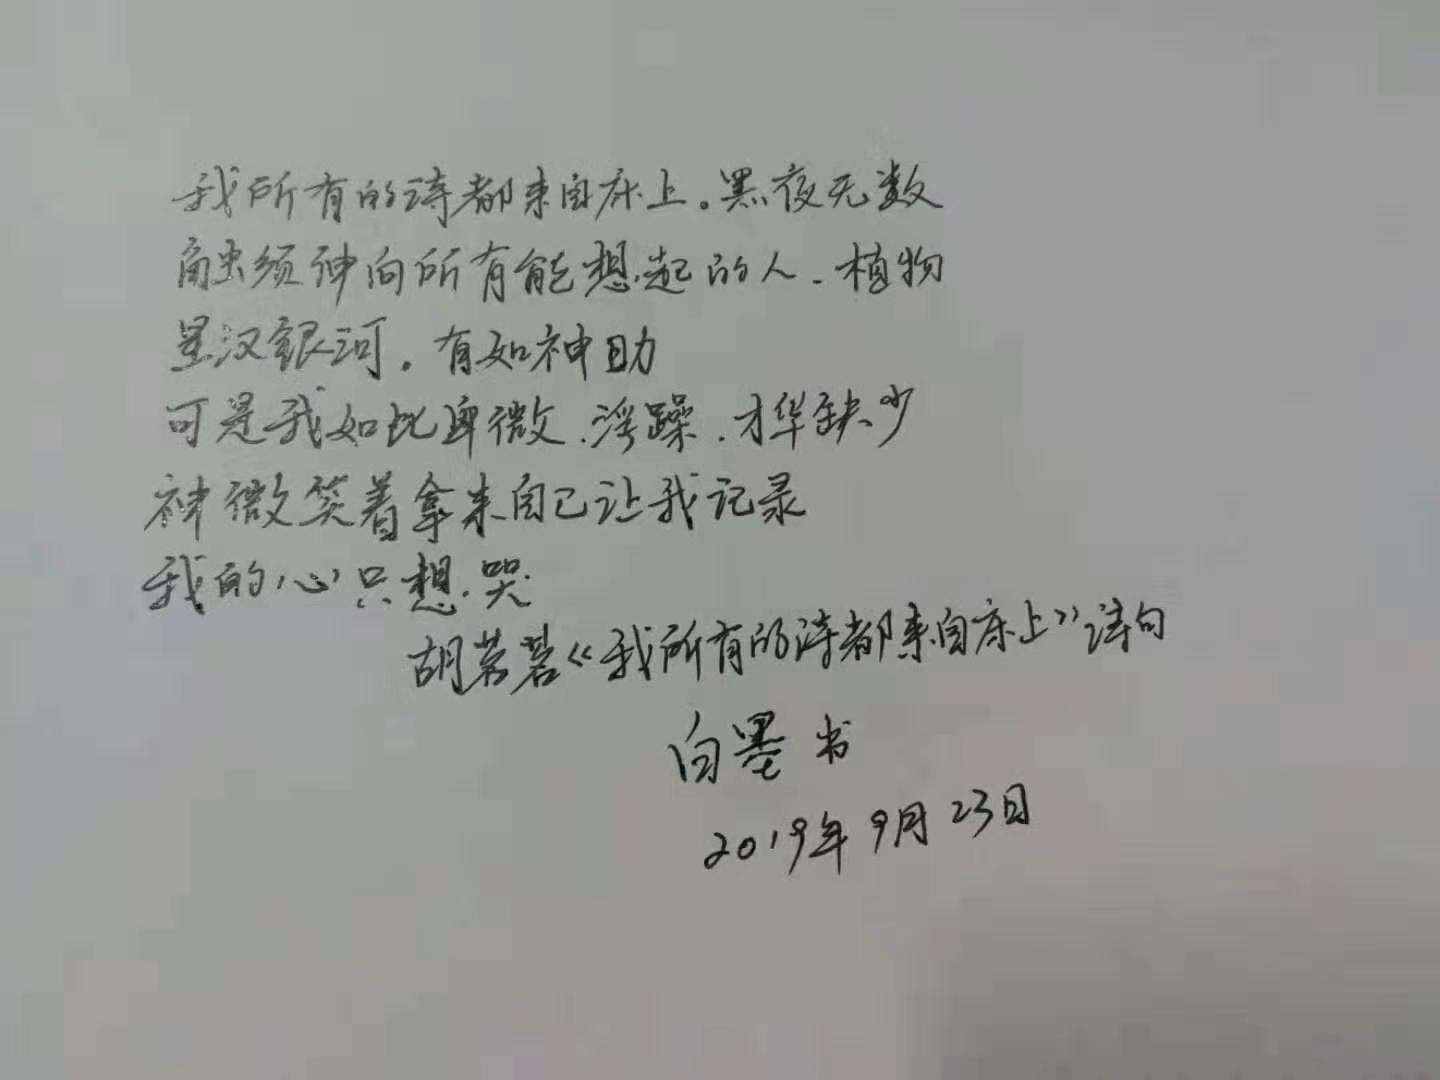 我所有的诗都来自床上。黑夜无数
触须伸向所有能想起的人、植物
星汉银河。有如神助
可是我如此卑微、浮躁、才华缺少
神微笑着拿来自己让我记录
我的心只想哭
胡茗茗《我所有的诗都来自床上》诗句
白墨书
2019年9月23日